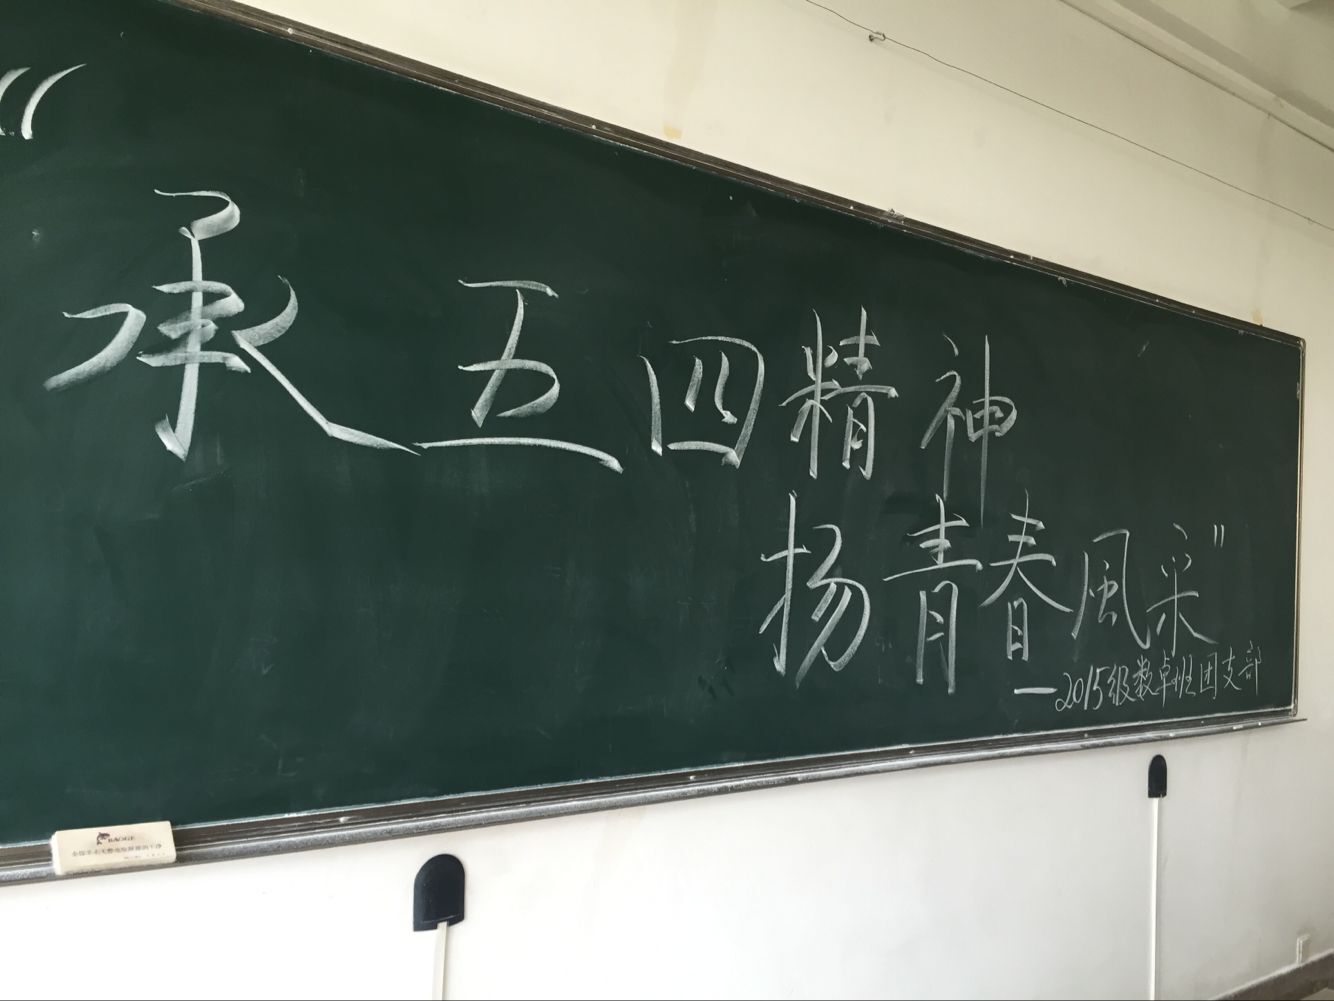 “承五四精神
扬青春風采”
—2015级数卓班团支部
BAOGE